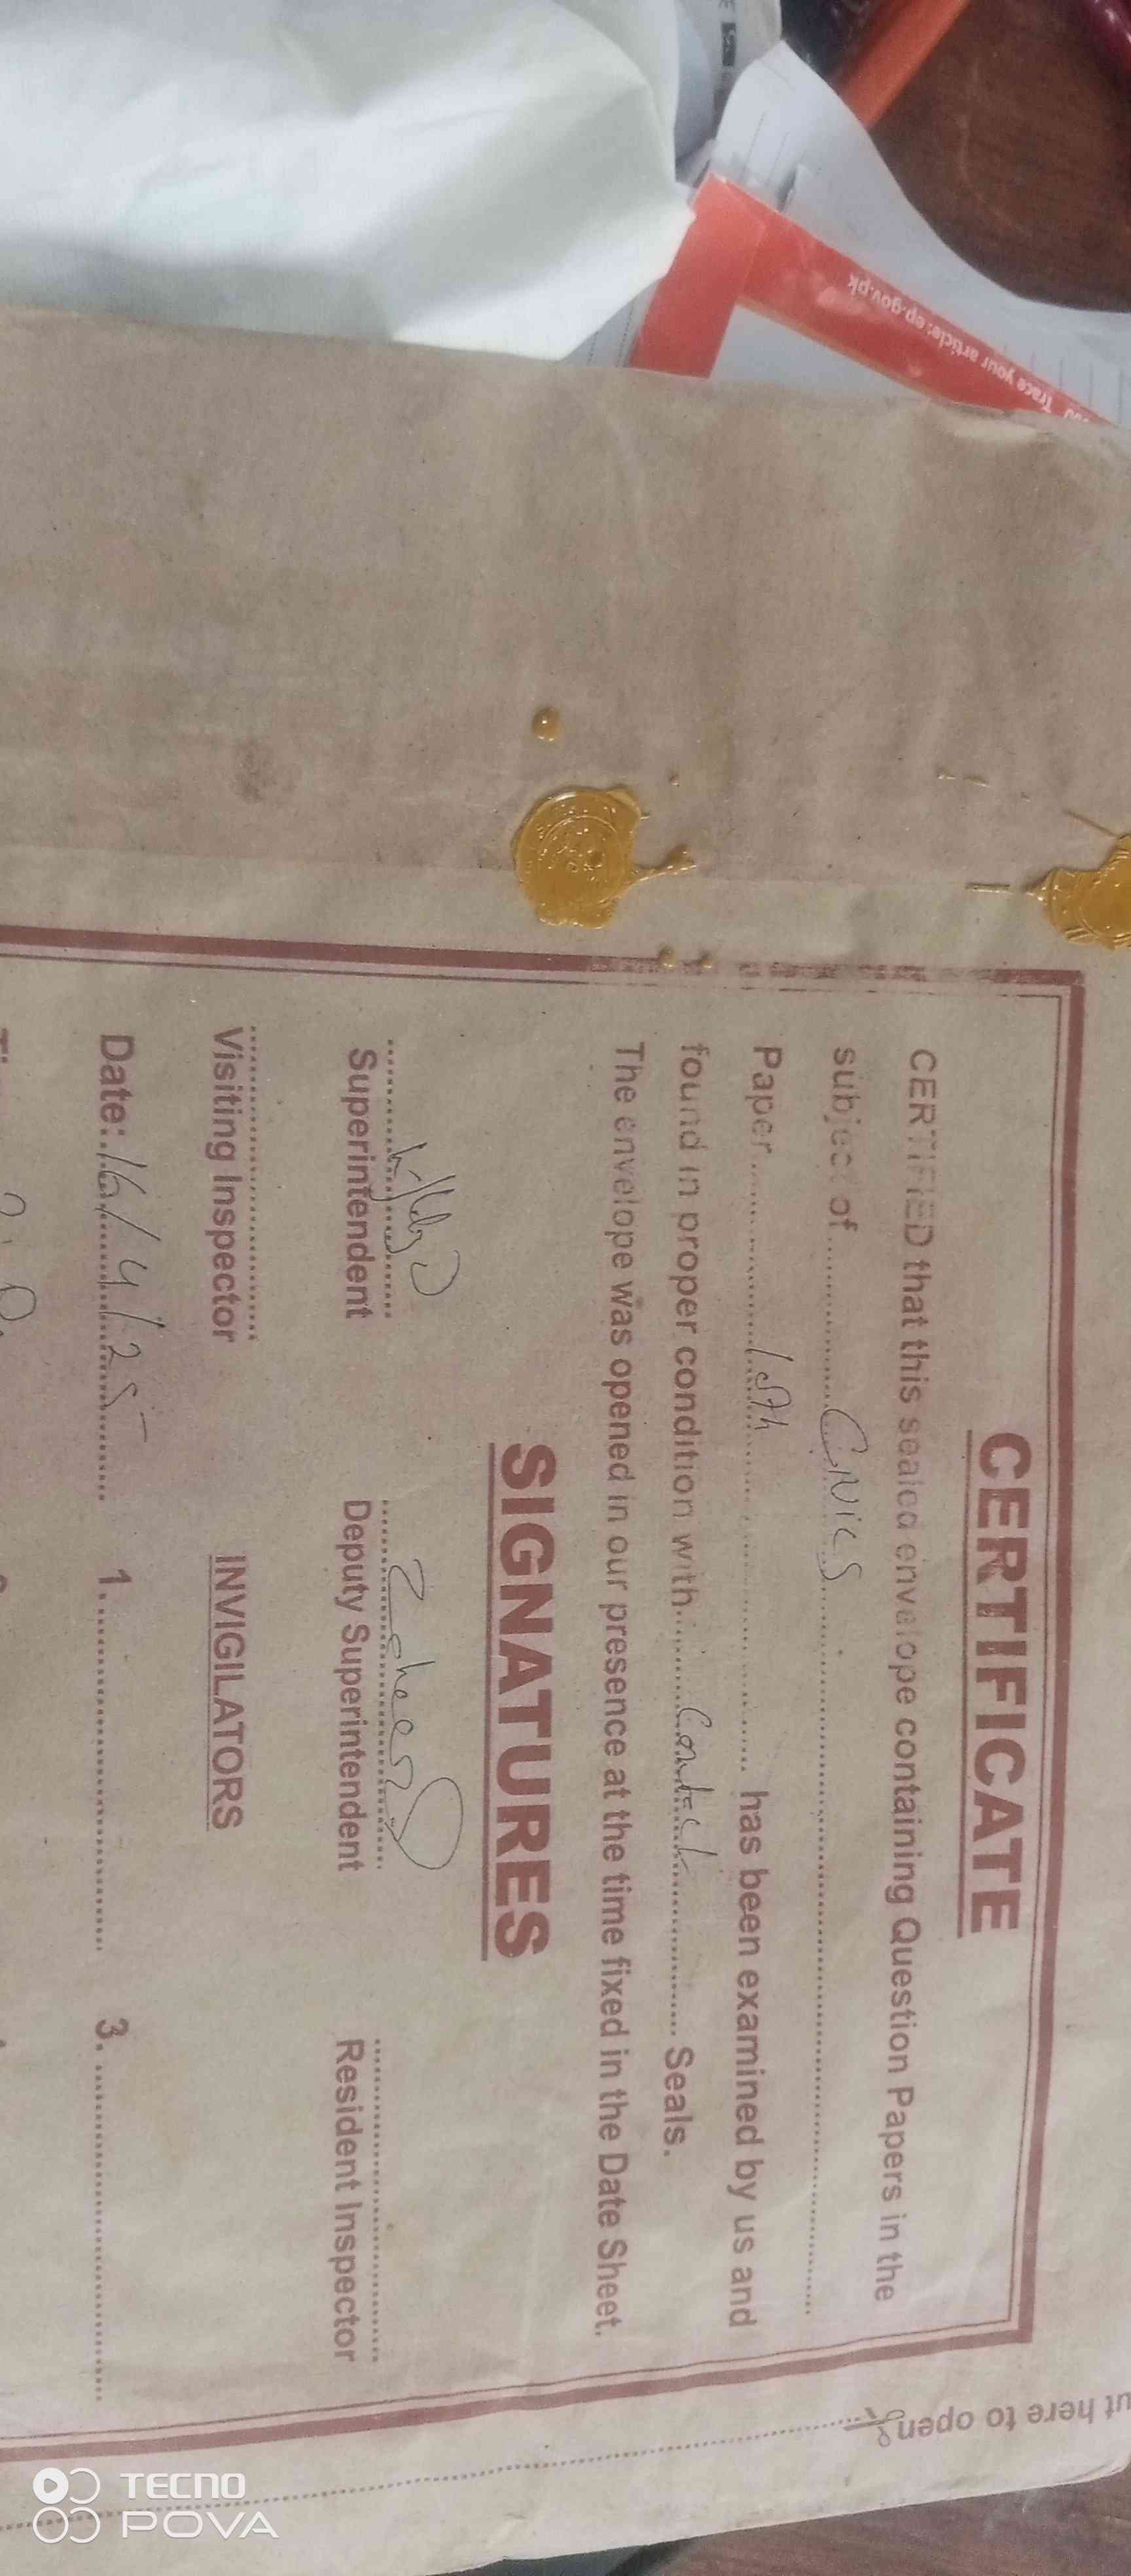 CERTIFICATE
CERTIFIED that this sealed envelope containing Question Papers in the
subject of ........ Civics ........
Paper ........ has been examined by us and
found in proper condition with ........ Seals.
The envelope was opened in our presence at the time fixed in the Date Sheet.
SIGNATURES
Superintendent Deputy Superintendent Resident Inspector
Visiting Inspector INVIGILATORS
Date: 16/4/25 1. ........ 3. ........
here to open
Trace your article: ep.gov.pk
TECNO
POVA